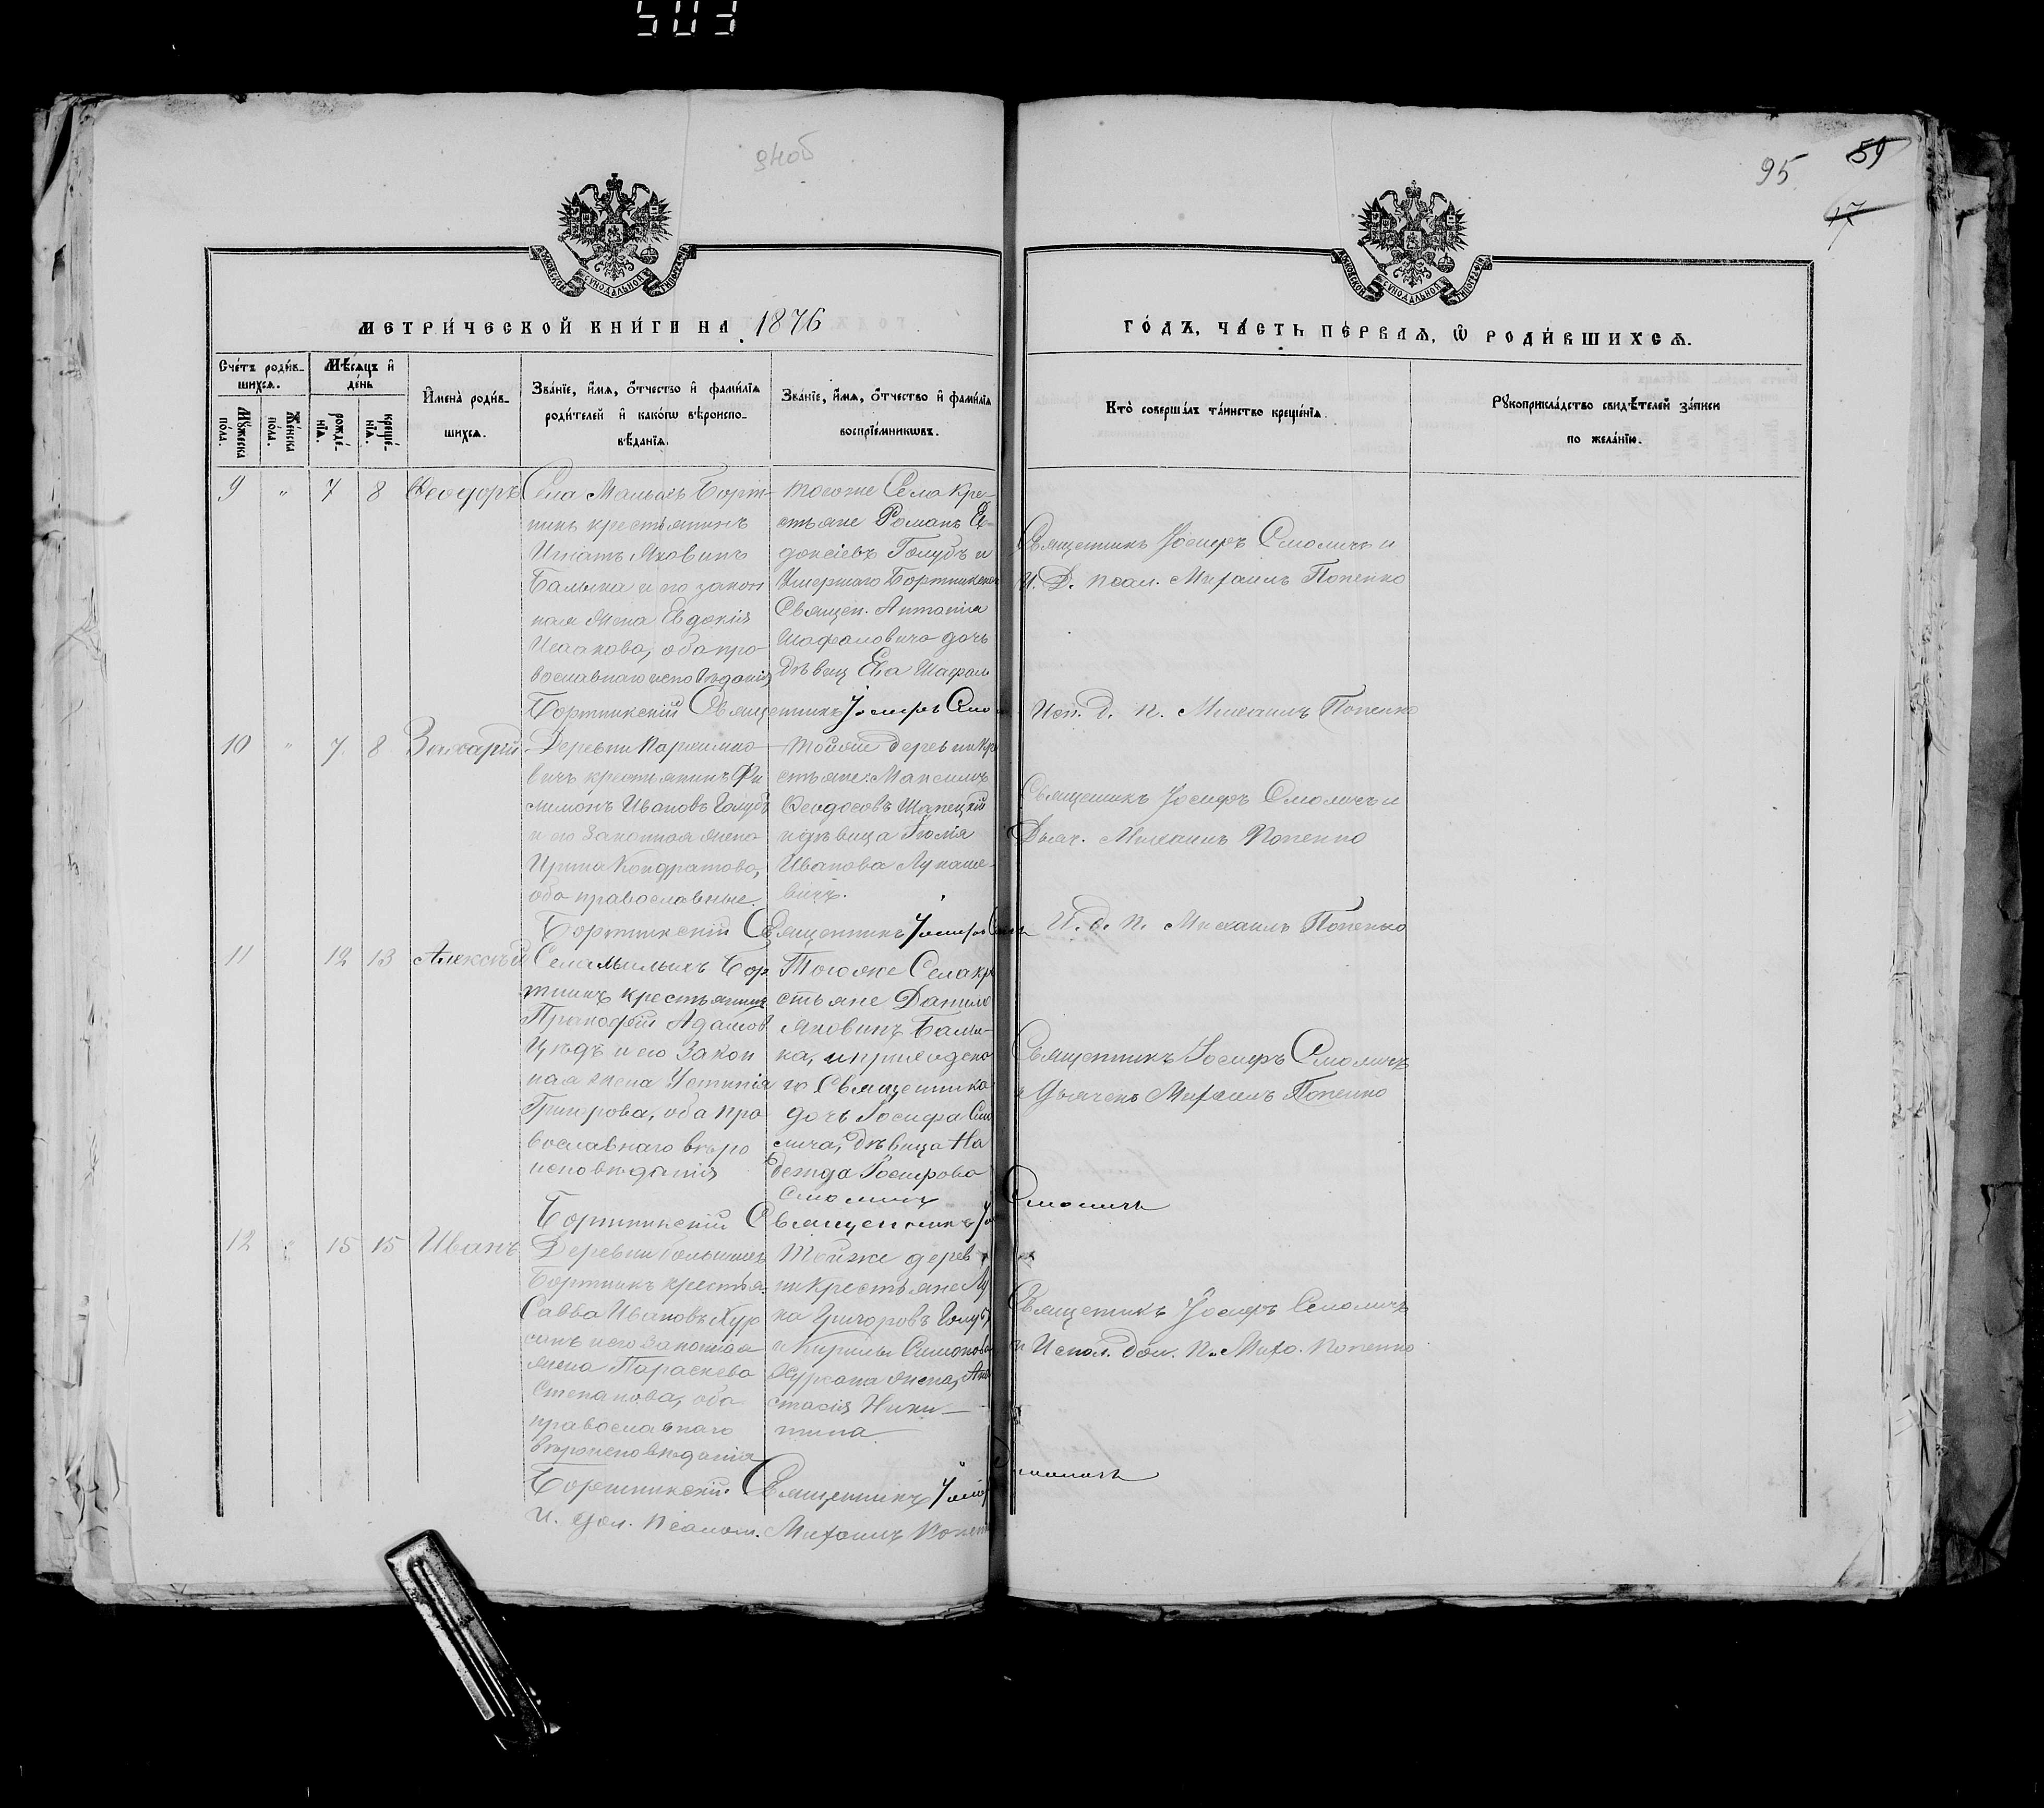 503
94об
95
59
17
МОСКОВСКОЙ СѴНОДАЛЬНОЙ ТИПОГРАФІИ
МОСКОВСКОЙ СѴНОДАЛЬНОЙ ТИПОГРАФІИ
МЕТРИ́ЧЕСКОЙ КНИ́ГИ НА 1876
ГО́ДЪ, ЧА́СТЬ ПЕ́РВАЯ, Ѽ РОДИ́ВШИХСЯ.
Сче́тъ роди́в-
шихся.
Мꙋжеска
по́ла.
Же́нска
по́ла.
Мѣ́сяцъ и҆
де́нь
рожде́-
нїя.
креще́-
нїя.
И҆мена̀ роди́в-
шихся.
Зва́нїе, и҆́мя, ѻ҆́тчество и҆ фами́лїя
роди́телей и҆ како́гѡ вѣроиспо-
вѣ́данїя.
Зва́нїе, и҆́мя, ѻ҆́тчество и҆ фами́лїя
воспрїе́мникѡвъ.
Кто̀ соверша́лъ та́инство креще́нїя.
Рꙋкоприкла́дство свидѣ́телей за́писи
по жела́нїю.
9 " 7 8 Ѳеодоръ
Села Малыхъ Борт-
никъ крестьянинъ
Игнатъ Яковинъ
Балыка и его закон
ная жена Евдокія
Исаакова, оба пра-
вославнаго исповѣданія
тогоже Села Кре-
стьяне Романъ Ев-
докіевъ Голубъ и
Умершаго Бортникскаго
Священ. Антонія
Шафаловича дочь
дѣвица Ева Шафал
Священникъ Іосифъ Смоличъ и
И. Д. псал. Михаилъ Попенко
Бортникскій Священникъ Іосифъ Смо
Исп. д. п. Михаилъ Попенко
10 " 7 8 Захарій
Деревни Пархимко-
вичъ крестьянинъ Фи
лимонъ Ивановъ Голубъ
и его Законная жена
Ирина Кондратова,
оба православные.
тойже деревни кре
стьяне: Максимъ
Ѳеодосовъ Шапецкій
и дѣвица Юлія
Иванова Лукаше-
вичъ.
Священникъ Іосифъ Смоличъ и
Дьяч. Михаилъ Попенко
Бортникскій Священникъ Іосифъ Смол
И. д. п. Михаилъ Попенко
11 12 13 Алексѣй
Села Малыхъ Бор
тникъ крестьянинъ
Прокофій Адамов
и его Закон
ная жена Устинія
Григорова, оба пра
вославнаго вѣро
исповѣданія
Тогоже Села кре
стьяне Данило
Яковинъ Балы-
ка, и приходска
го Священника
дочь Іосифа Смо
лича, дѣвица На
дежда Іосифова
Смоличъ
Священникъ Іосифъ Смоличъ
и Дьячекъ Михаилъ Попенко
Бортникскій Священникъ Іо
Смоличъ
12 " 15 15 Иванъ
Деревни Большихъ
Бортникъ крестья.
Савва Ивановъ Хур
санъ и его Законная
жена Параскева
Степанова, оба
православнаго
вѣроисповѣданія
Тойже дерев
ни Крестьяне Лу
ка Григоровъ Голубъ
и Кирилы Симонова
Хурсана жена, Ана
стасія Ники-
тина
Священникъ Іосифъ Смоличъ
и Испол. дол. п. Миха. Попенко
Бортникскій Священникъ Іосиф
Смоличъ
И. дол. Псалом. Михаилъ Попенк